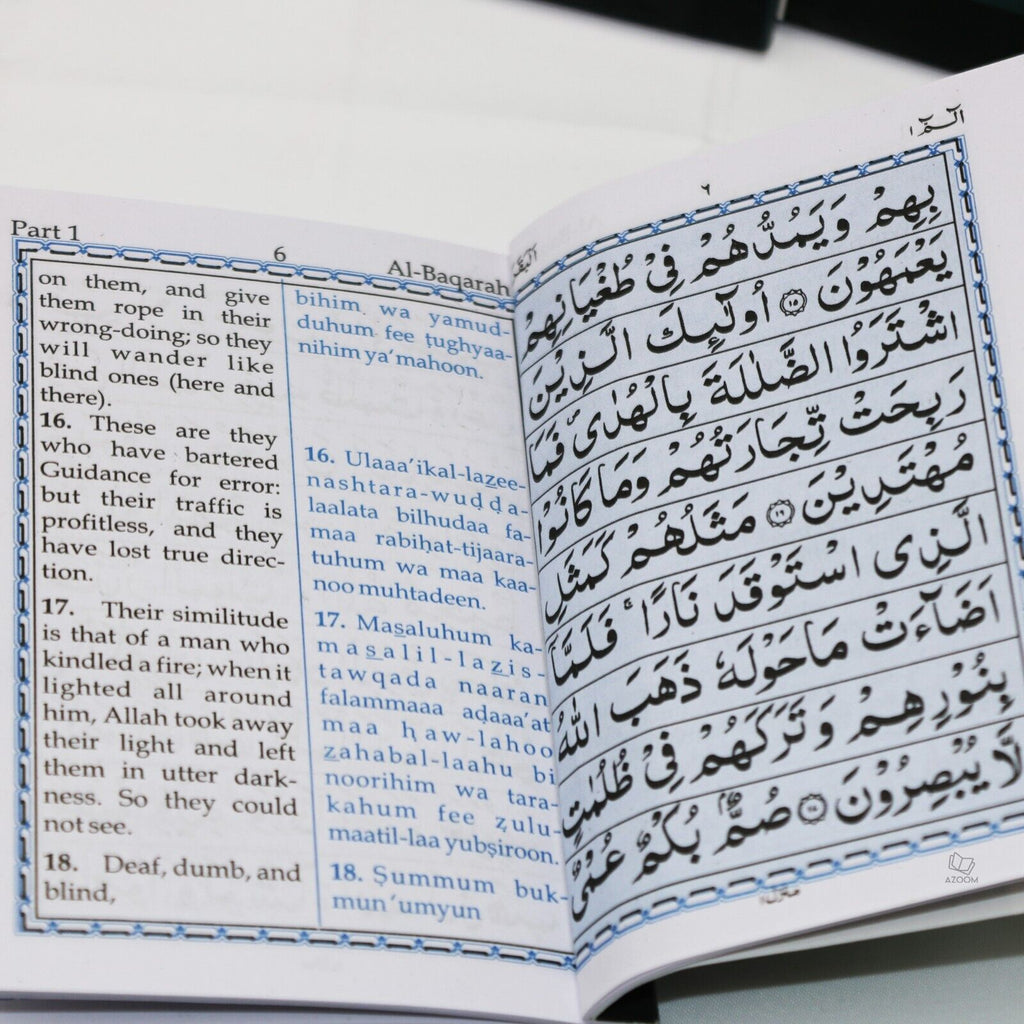 Part 1
6
Al-Baqarah
on them, and give
them rope in their
wrong-doing; so they
will wander like
blind ones (here and
there).
16. These are they
who have bartered
Guidance for error:
but their traffic is
profitless, and they
have lost true direc-
tion.
17. Their similitude
is that of a man who
kindled a fire; when it
lighted all around
him, Allah took away
their light and left
them in utter dark-
ness. So they could
not see.
18. Deaf, dumb, and
blind,
bihim wa yamud-
duhum fee ṭughyaa-
nihim ya’mahoon.
16. Ulaaa’ikal-lazee-
nashtara-wuḍḍa-
laalata bilhudaa fa-
maa rabiḥat-tijaara-
tuhum wa maa kaa-
noo muhtadeen.
17. Masaluhum ka-
masalil-lazis-
tawqada naaran
falammaaa aḍaaa’at
maa ḥaw-lahoo
zahabal-laahu bi
noorihim wa tara-
kahum fee ẓulu-
maatil-laa yubṣiroon.
18. Ṣummum buk-
mun ’umyun
الٓمّٓ ١
٦
بِهِمْ وَيَمُدُّهُمْ فِىْ طُغْيَانِهِمْ
يَعْمَهُوْنَ ۝١٥ اُولٰٓئِكَ الَّذِيْنَ
اشْتَرَوُا الضَّلٰلَةَ بِالْهُدٰى فَمَا
رَبِحَتْ تِّجَارَتُهُمْ وَمَا كَانُوْا
مُهْتَدِيْنَ ۝١٦ مَثَلُهُمْ كَمَثَلِ
الَّذِى اسْتَوْقَدَ نَارًا ۚ فَلَمَّآ
اَضَآءَتْ مَا حَوْلَهٗ ذَهَبَ اللّٰهُ
بِنُوْرِهِمْ وَتَرَكَهُمْ فِىْ ظُلُمٰتٍ
لَّا يُبْصِرُوْنَ ۝١٧ صُمٌّۢ بُكْمٌ عُمْىٌ
AZOOM